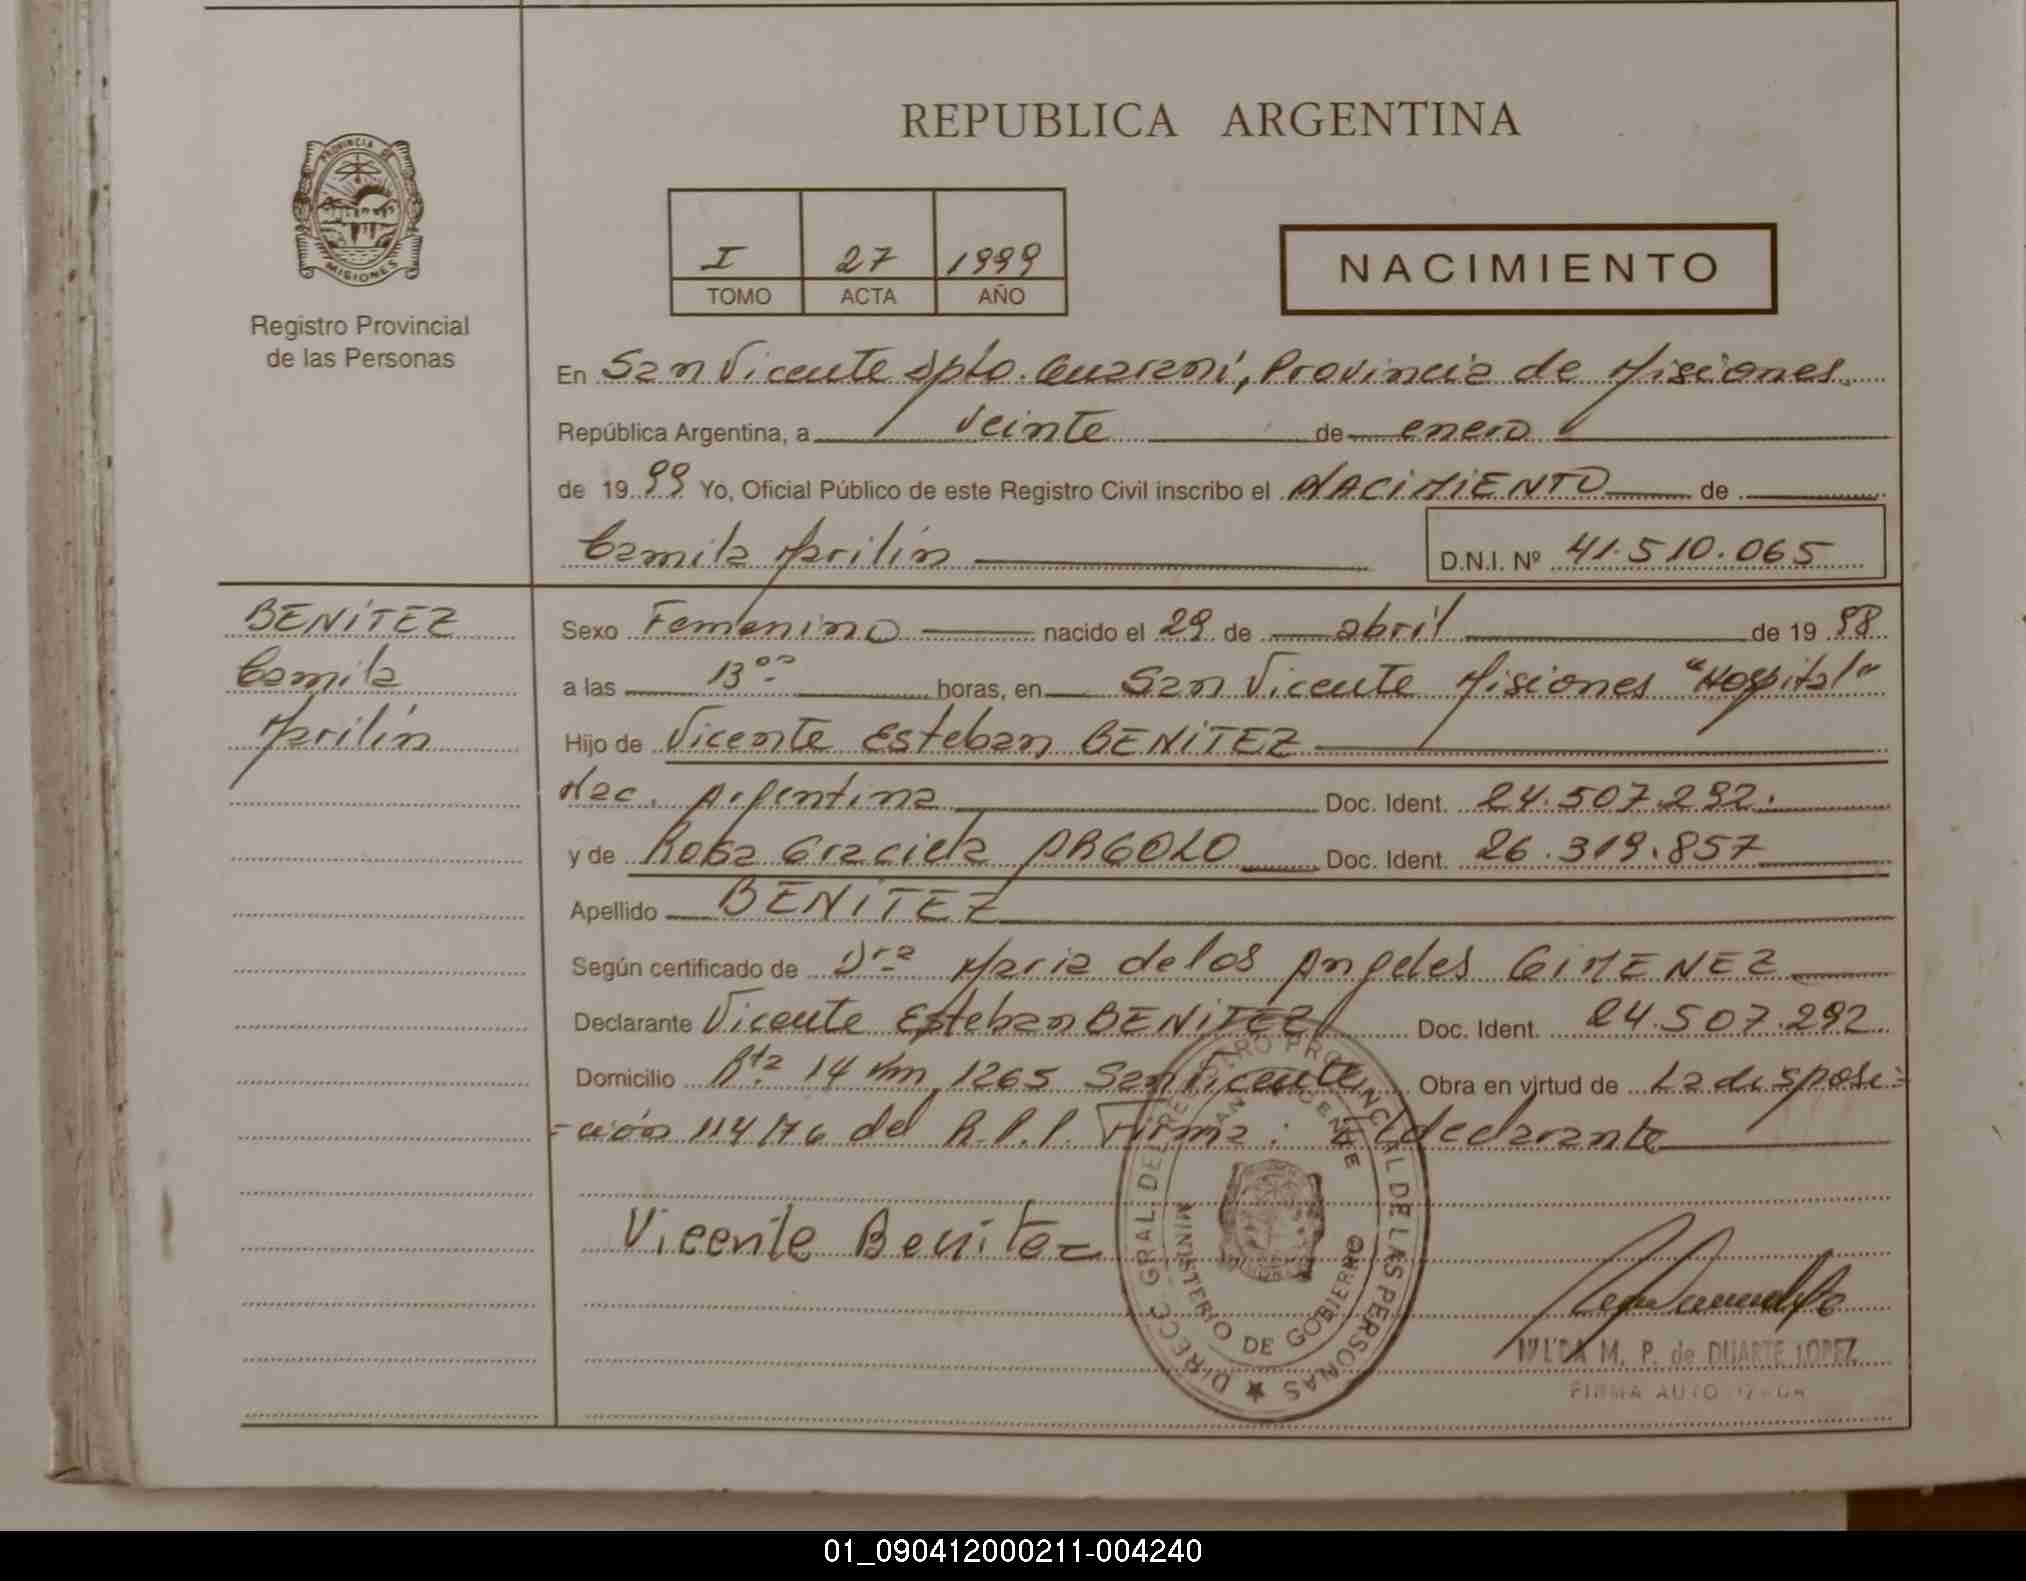 REPUBLICA ARGENTINA
PROVINCIA DE
MISIONES
Registro Provincial
de las Personas
I 27 1999
TOMO ACTA AÑO
NACIMIENTO
En San Vicente Dpto. Guaraní, Provincia de Misiones
República Argentina, a veinte de enero
de 1999 Yo, Oficial Público de este Registro Civil inscribo el NACIMIENTO de
Camila Marilín
D.N.I. Nº 41.510.065
BENITEZ
Camila
Marilín
Sexo Femenino nacido el 29 de abril de 1998
a las 13ºº horas, en San Vicente Misiones "Hospital"
Hijo de Vicente Esteban BENITEZ
Nac. Argentina Doc. Ident. 24.507.292.
y de Rosa Graciela ARGOLO Doc. Ident. 26.319.857
Apellido BENITEZ
Según certificado de Dra Maria de los Angeles GIMENEZ
Declarante Vicente Esteban BENITEZ Doc. Ident. 24.507.292
Domicilio Rta 14 Km 1265 San Vicente Obra en virtud de La disposi=
=ción 114/76 del R.P.P. Firma: El declarante
Vicente Benitez
DIRECC. GRAL. DEL REGISTRO PROVINCIAL DE LAS PERSONAS
SAN VICENTE
MINISTERIO DE GOBIERNO
M. P. de DUARTE LOPEZ
FIRMA AUTORIZADA
01_090412000211-004240